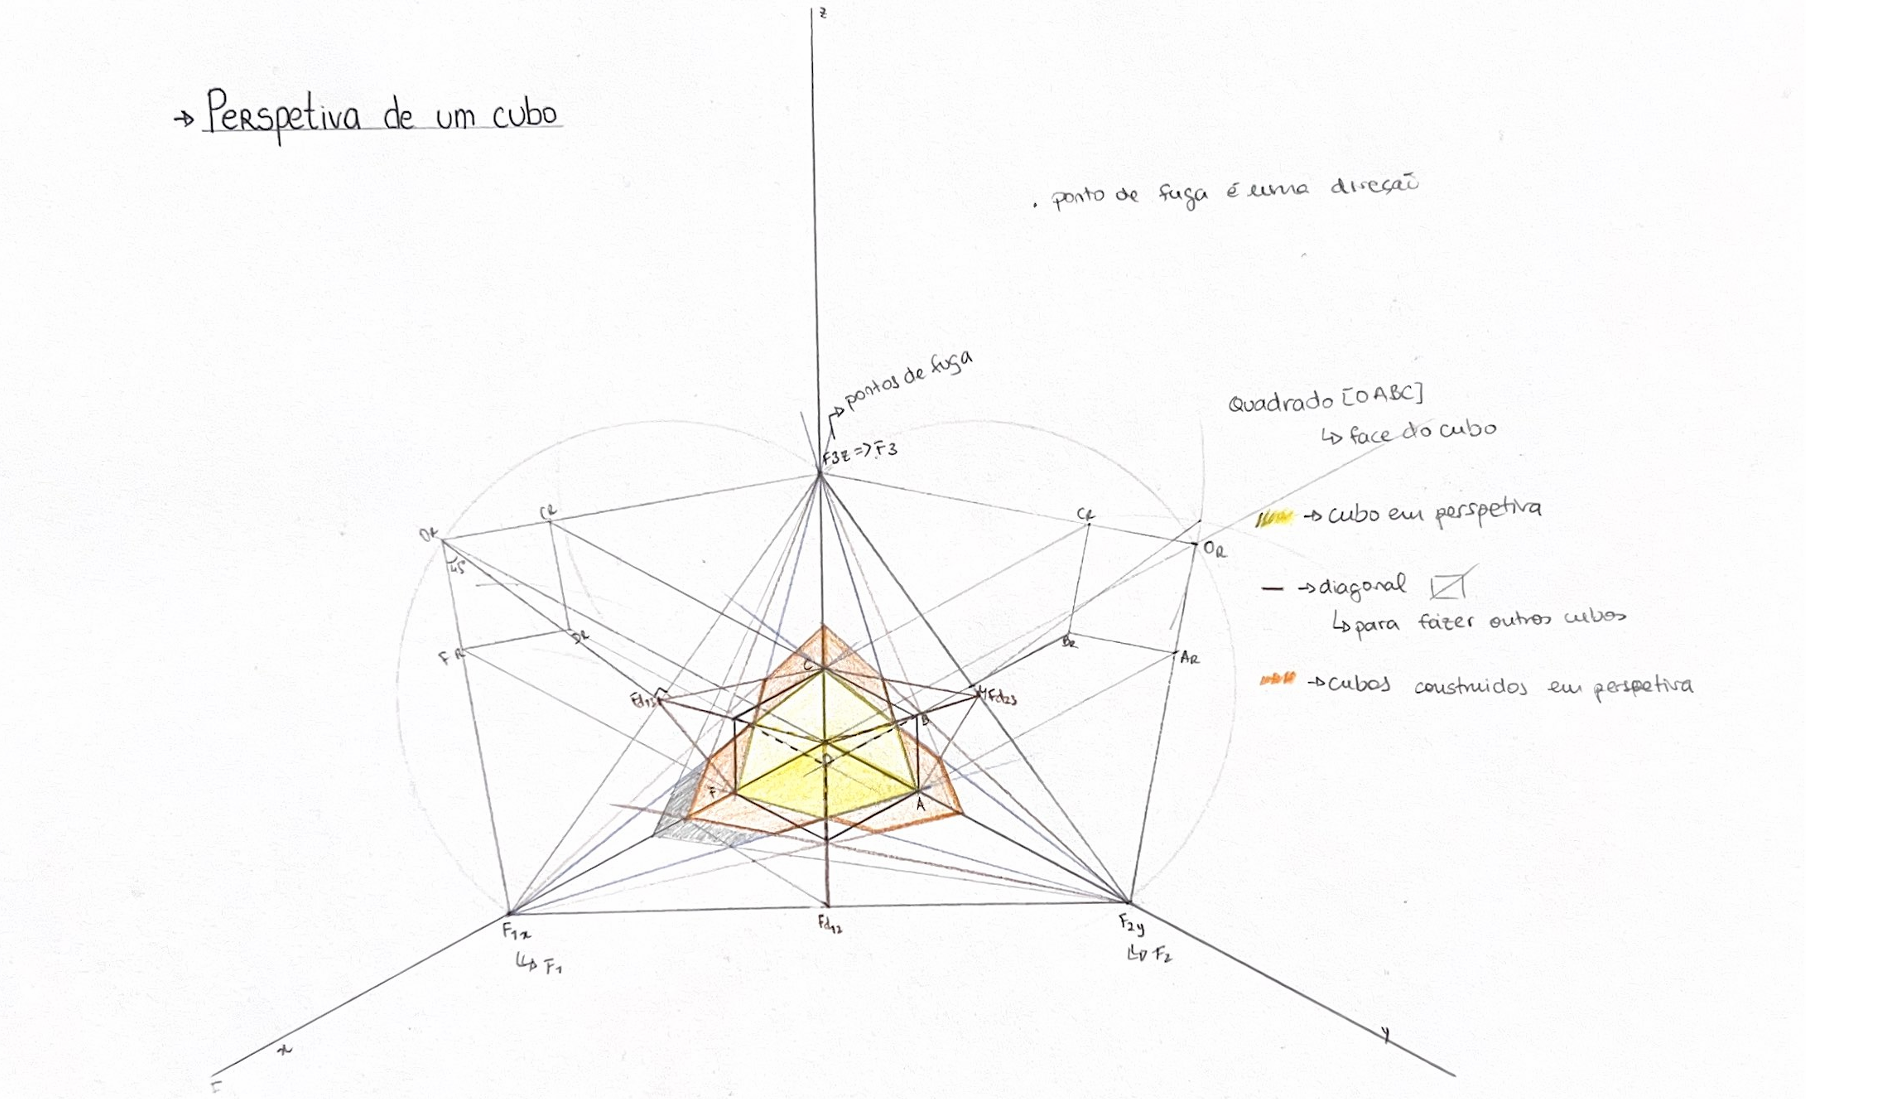 z
→ Perspetiva de um cubo
. ponto de fuga é uma direção
→ pontos de fuga
F3z => F3
Quadrado [OABC]
↳ face do cubo
→ cubo em perspetiva
— → diagonal
↳ para fazer outros cubos
→ cubos construidos em perspetiva
OR
CR
45°
FR
DR
CR
OR
BR
AR
Fd13
C
Fd23
B
O
F
A
F1x
↳ F1
Fd12
F2y
↳ F2
x
y